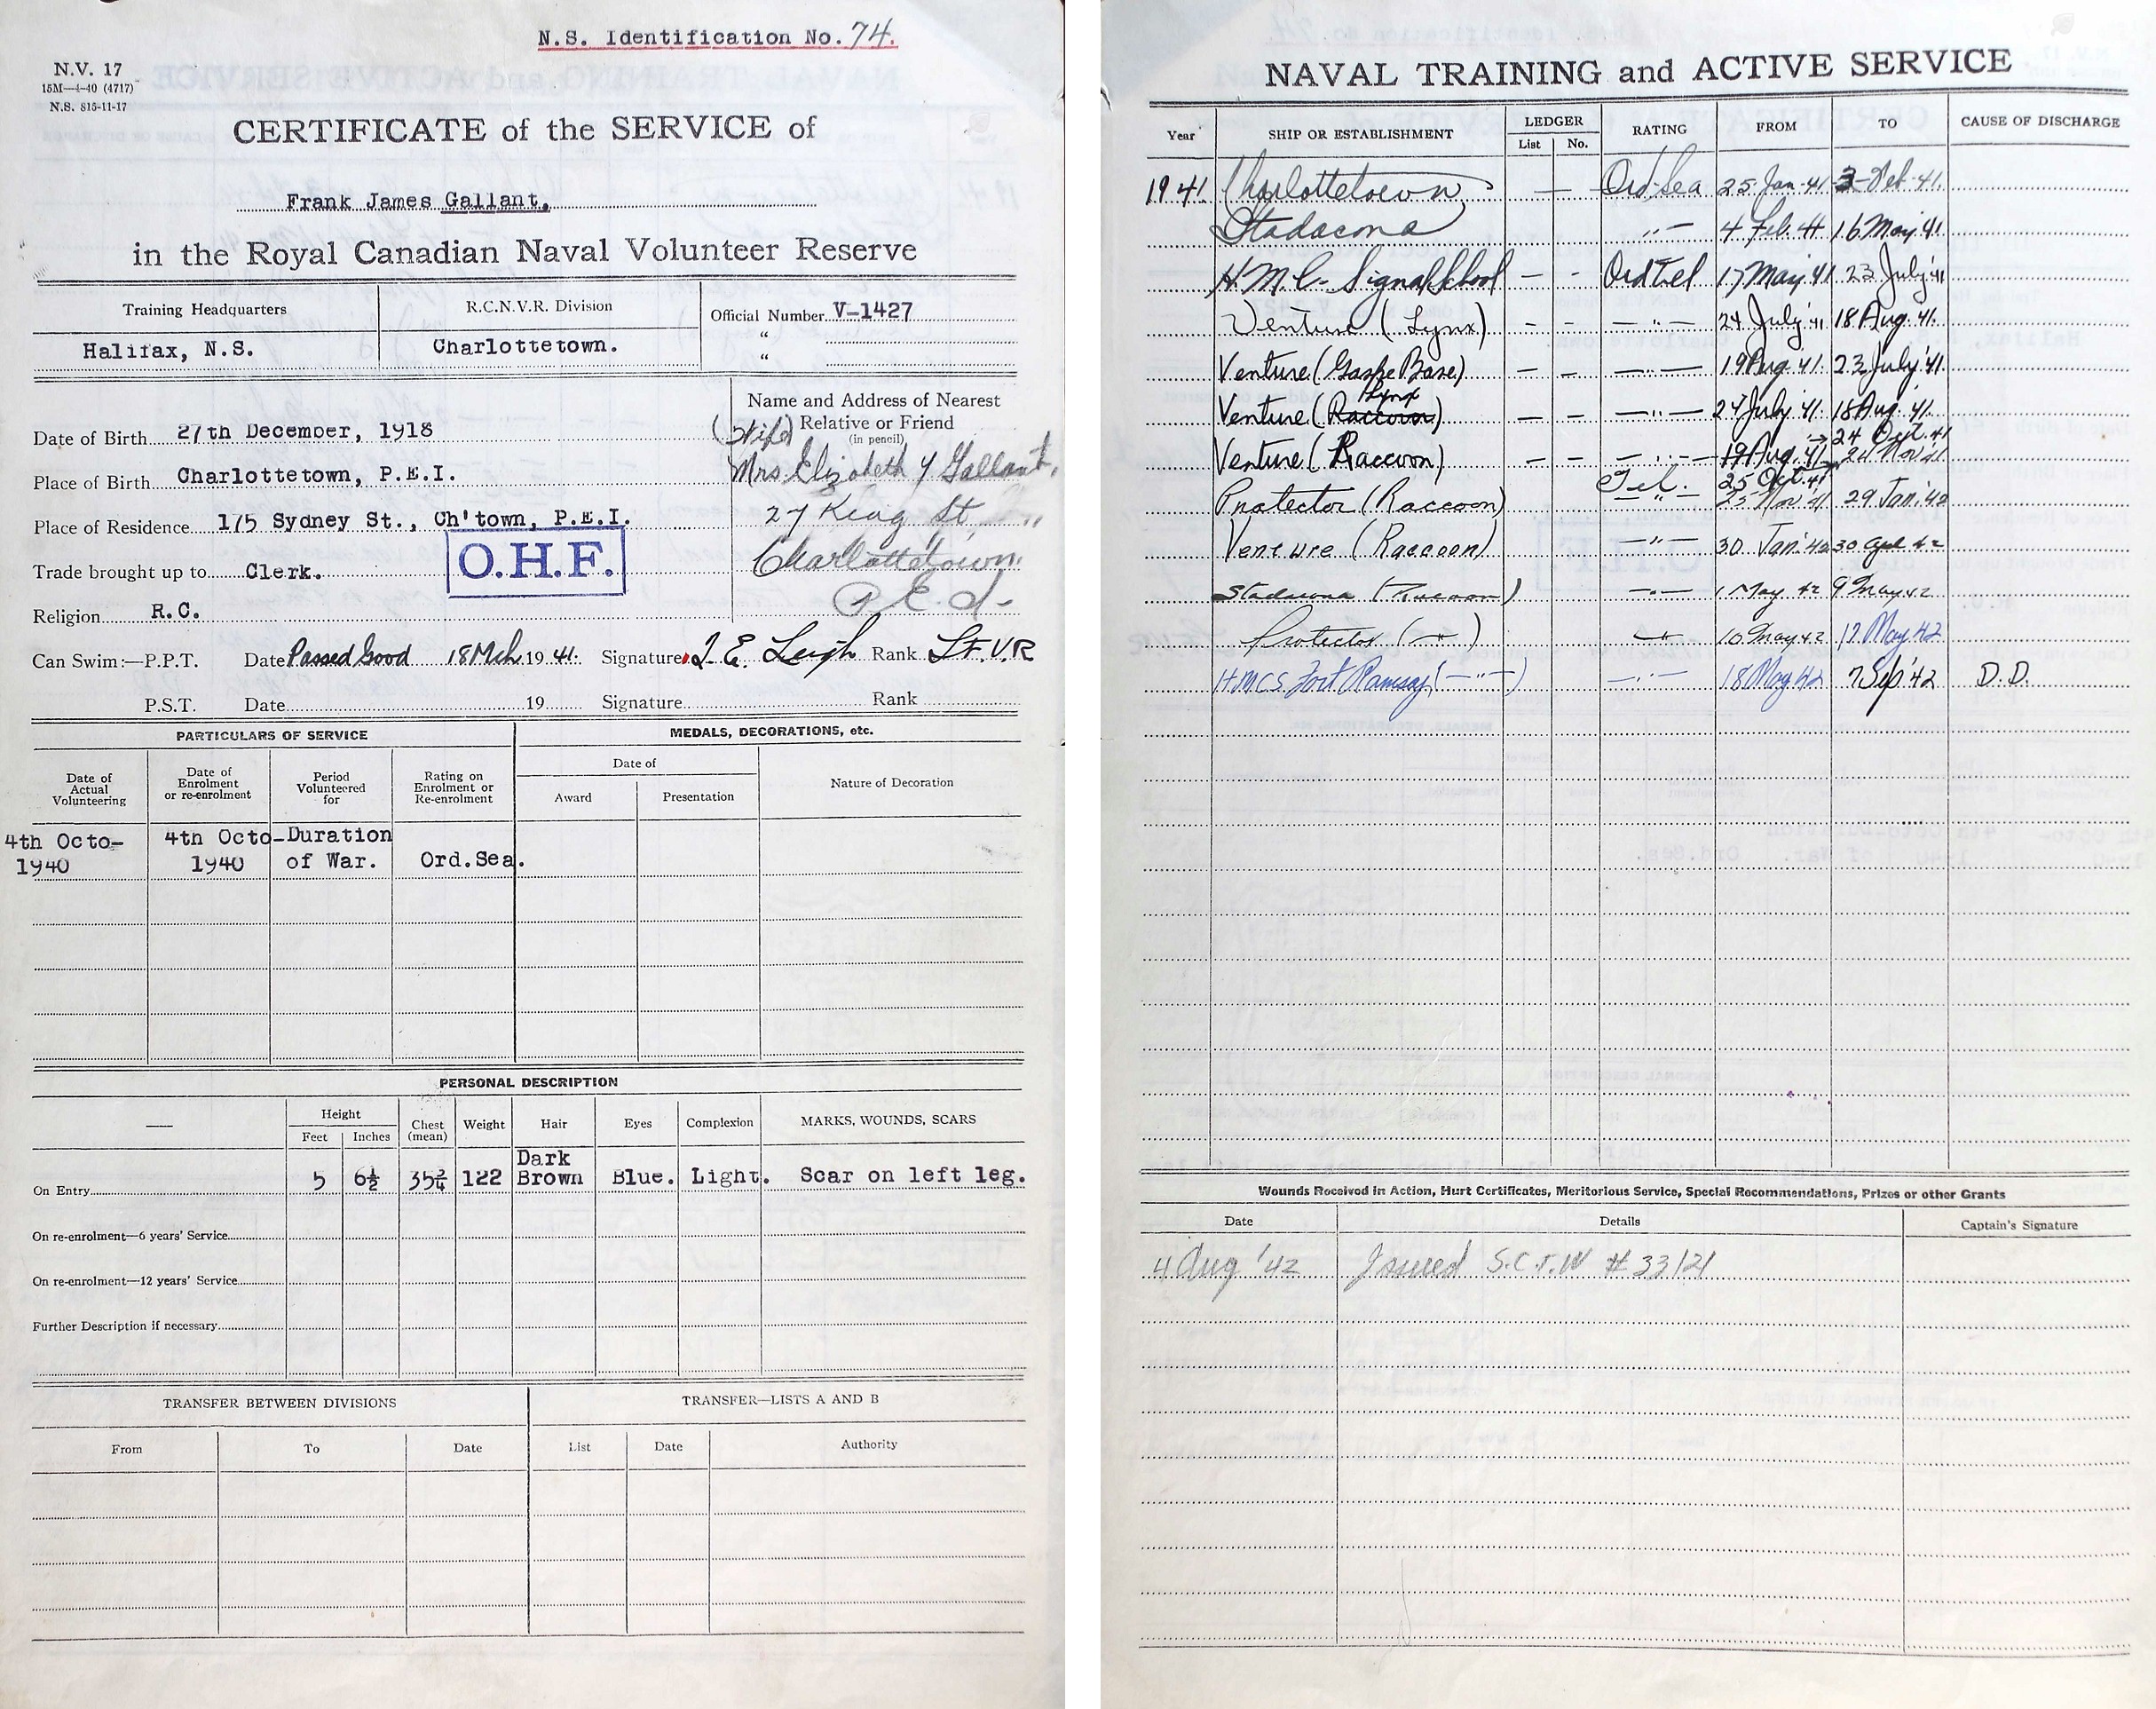 N.S. Identification No. 74.
N.V. 17
15M—4-40 (4717)
N.S. 815-11-17
CERTIFICATE of the SERVICE of
Frank James Gallant,
in the Royal Canadian Naval Volunteer Reserve
Training Headquarters R.C.N.V.R. Division Official Number V-1427
Halifax, N.S. Charlottetown. "
"
Name and Address of Nearest
Relative or Friend
(in pencil)
(Wife)
Date of Birth 27th December, 1918
Mrs Elizabeth Y Gallant,
Place of Birth Charlottetown, P.E.I.
27 King St
Place of Residence 175 Sydney St., Ch'town, P.E.I.
Charlottetown
Trade brought up to Clerk.
O.H.F.
P.E.I.
Religion R.C.
Can Swim:—P.P.T. Date Passed Good 18 Mch 1941. Signature Leigh Rank Lt. V.R
P.S.T. Date 19 Signature Rank
PARTICULARS OF SERVICE MEDALS, DECORATIONS, etc.
Date of Actual Volunteering Date of Enrolment or re-enrolment Period Volunteered for Rating on Enrolment or Re-enrolment Date of Nature of Decoration
Award Presentation
4th Octo- 4th Octo- Duration
1940 1940 of War. Ord.Sea.
PERSONAL DESCRIPTION
— Height Chest (mean) Weight Hair Eyes Complexion MARKS, WOUNDS, SCARS
Feet Inches
On Entry 5 6½ 35¾ 122 Dark Brown Blue. Light. Scar on left leg.
On re-enrolment—6 years' Service
On re-enrolment—12 years' Service
Further Description if necessary
TRANSFER BETWEEN DIVISIONS TRANSFER—LISTS A AND B
From To Date List Date Authority
NAVAL TRAINING and ACTIVE SERVICE
Year SHIP OR ESTABLISHMENT LEDGER RATING FROM TO CAUSE OF DISCHARGE
List No.
1941 Charlottetown — Ord. Sea 25 Jan 41 3 Feb 41.
Stadacona " 4 Feb. 41 16 May 41
H.M.C. Signal School — - Ord Tel 17 May 41 23 July 41
Venture (Lynx) - - — " — 24 July 41 18 Aug. 41.
Venture (Gaspe Base) — — — " — 19 Aug 41. 23 July 41
Lynx
Venture (Raccoon) — - — " — 24 July 41 18 Aug 41
24 Oct. 41
Venture (Raccoon) — - - " - 19 Aug. 41 24 Nov 41
Tel. 25 Oct. 41
Protector (Raccoon) — " — 25 Nov 41 29 Jan '42
Venture (Raccoon) — " — 30 Jan. 42 30 Apl 42
Stadacona (Raccoon) — " — 1 May 42 9 May 42
Protector (—"—) — " — 10 May 42 17 May 42
H.M.C.S. Fort Ramsay (—"—) — " — 18 May 42 7 Sep '42 D.D.
Wounds Received in Action, Hurt Certificates, Meritorious Service, Special Recommendations, Prizes or other Grants
Date Details Captain's Signature
4 Aug '42 Issued S.C.T.W #33121